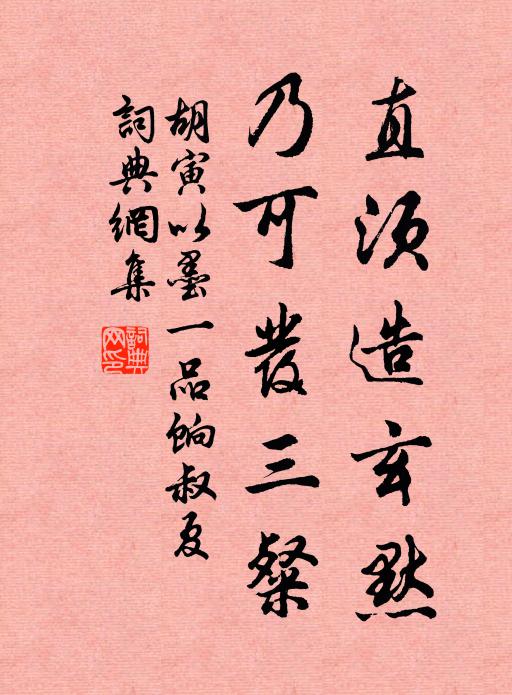 直須造玄默
乃可發三粲
胡寅以墨一品餉叔夏
詞典網集
詞典網印